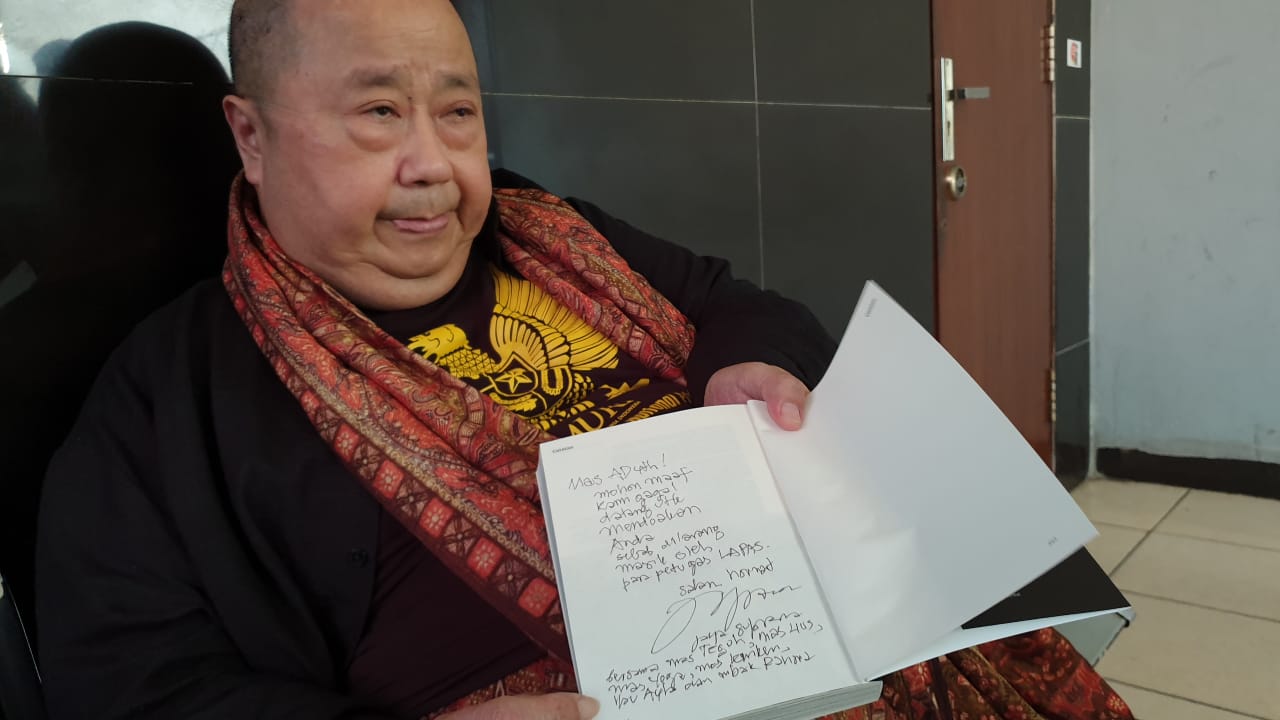 Mas AD4th!
mohon maaf
kami gagal
datang utk
mendoakan
Anda
sebab dilarang
masik oleh
para petugas LAPAS.
salam hormat
Jaya Suprana
bersama mas Teguh, mas
mas
Ibu Ayla dan mbak
MURI